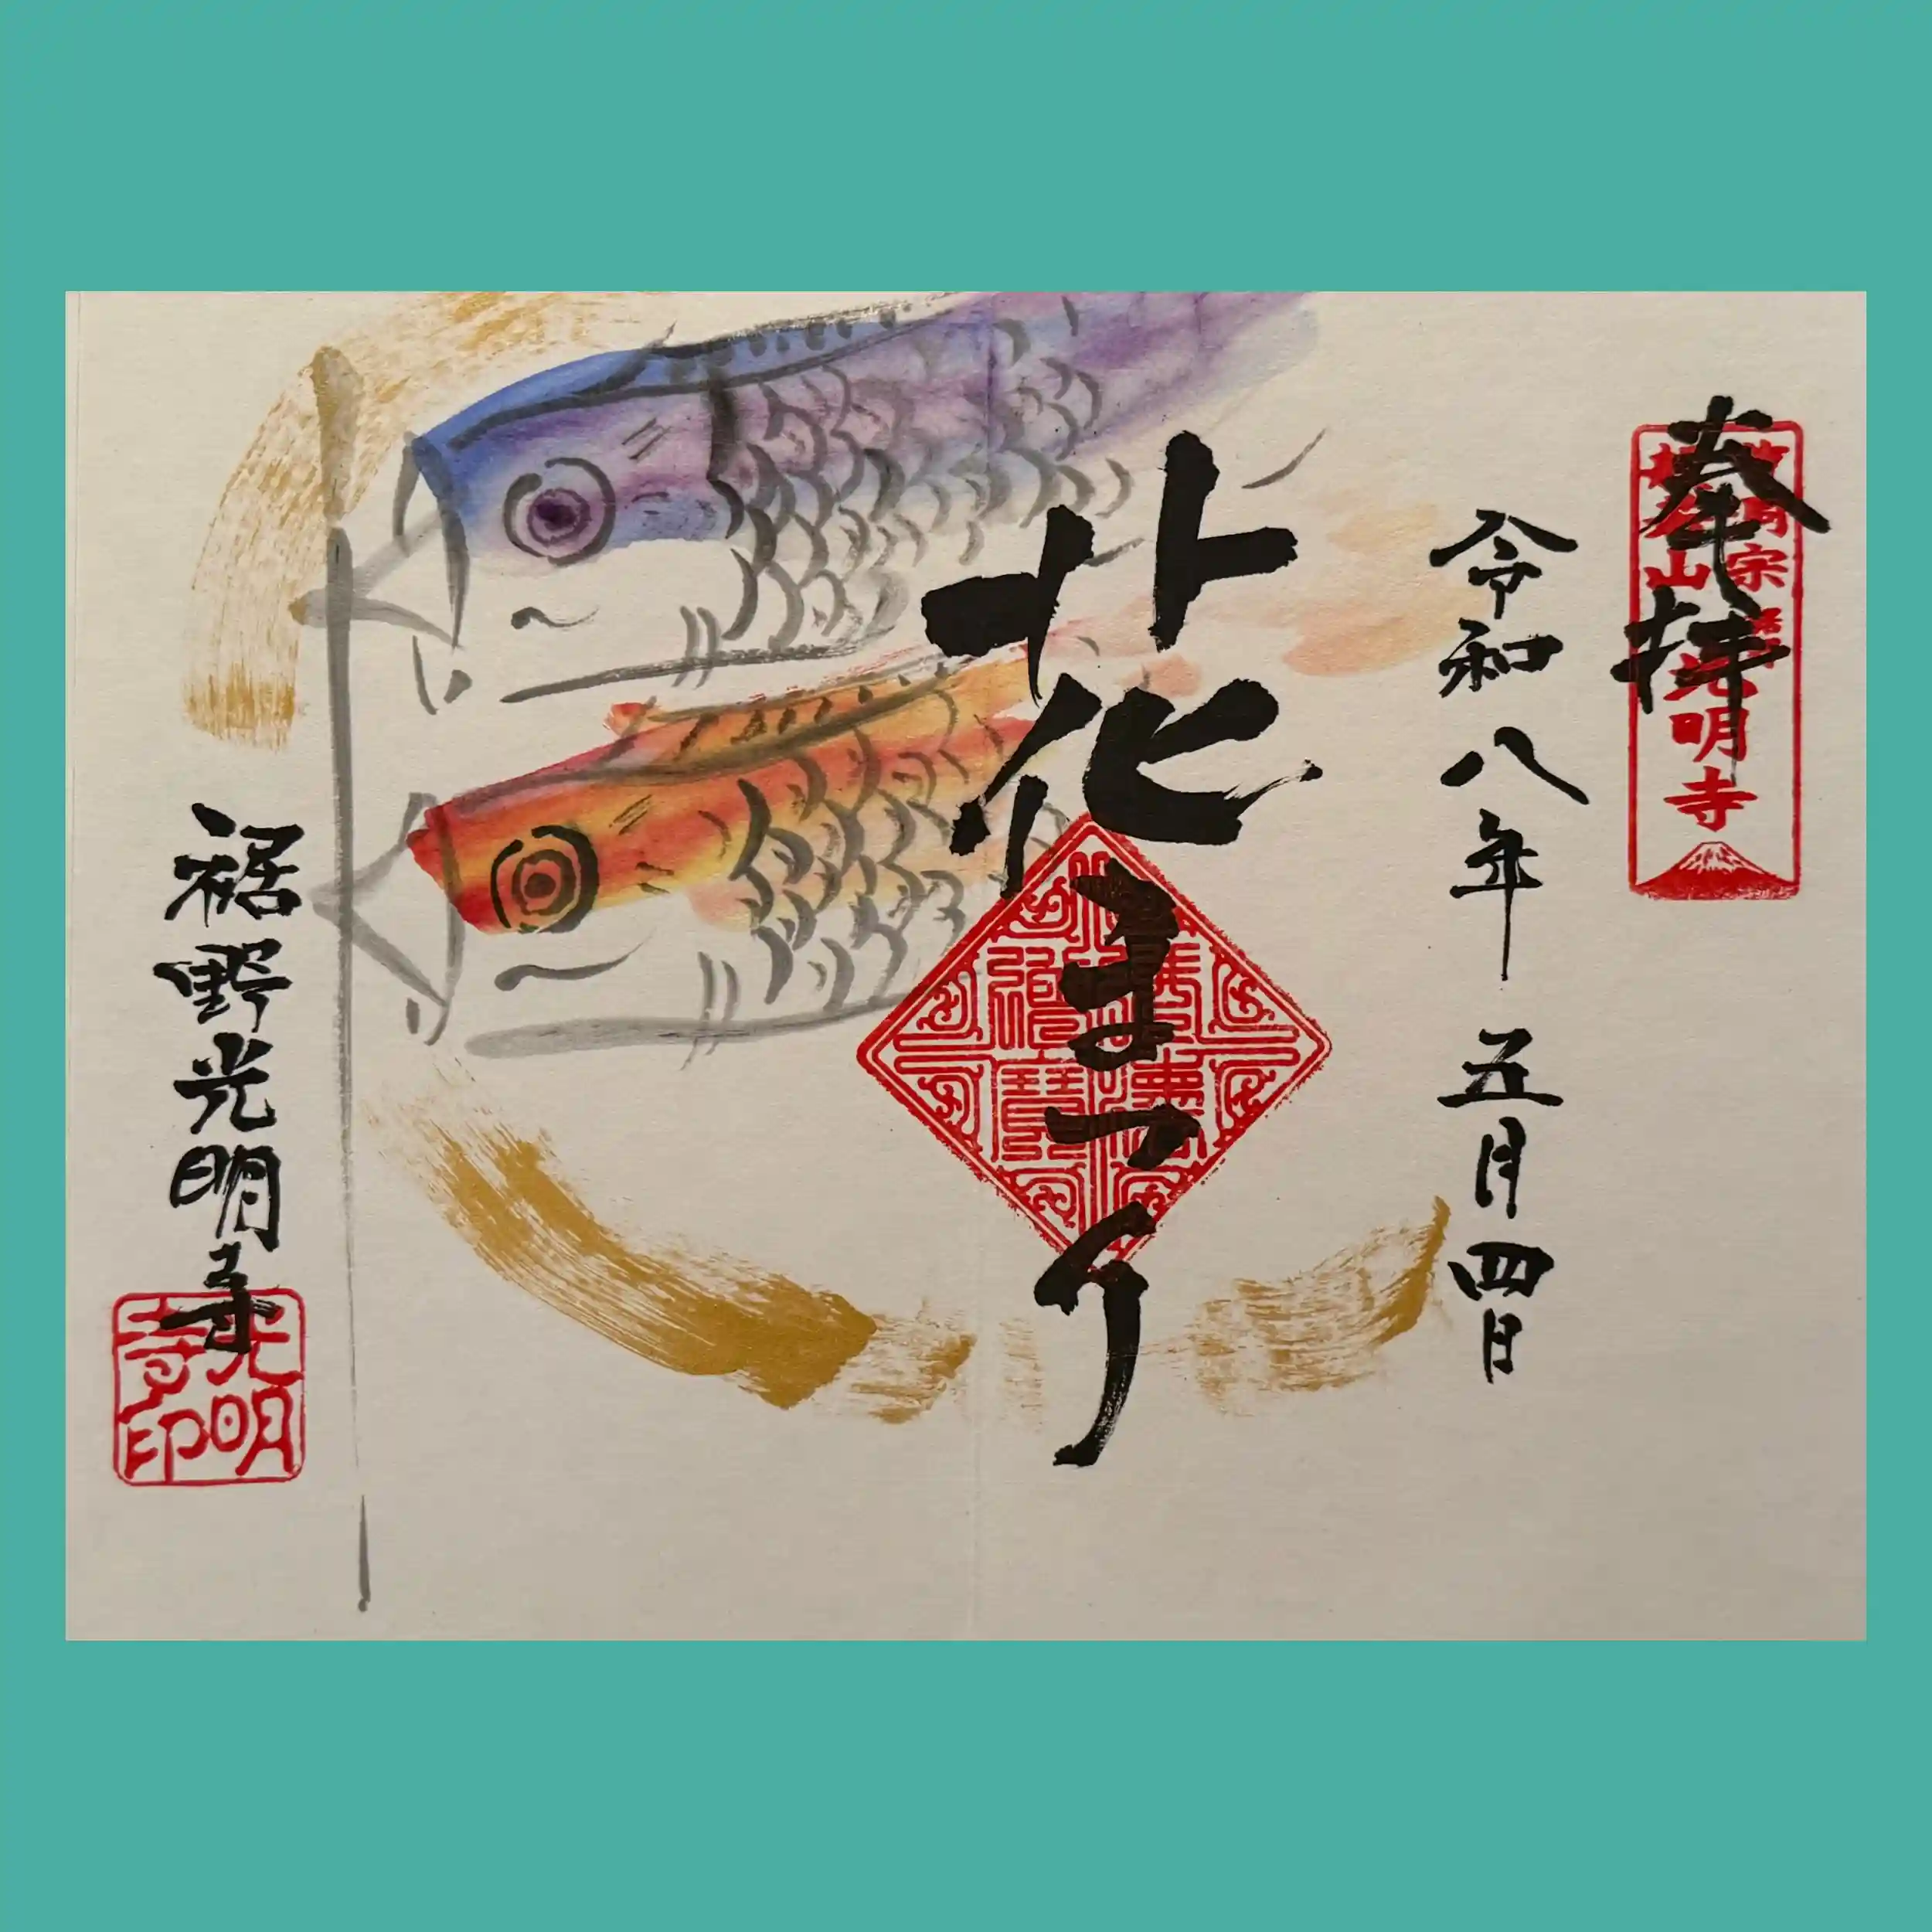 奉拝
光明寺
令和八年 五月四日
花まつり
裾野光明寺
光明寺印